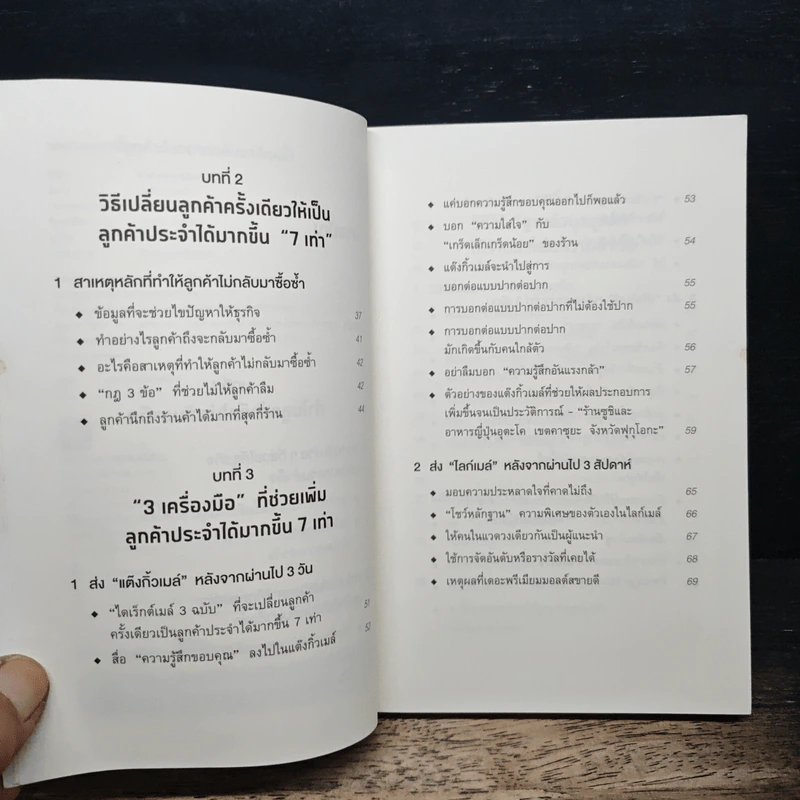 บทที่ 2
วิธีเปลี่ยนลูกค้าครั้งเดียวให้เป็น
ลูกค้าประจำได้มากขึ้น “7 เท่า”
1 สาเหตุหลักที่ทำให้ลูกค้าไม่กลับมาซื้อซ้ำ
◆ ข้อมูลที่จะช่วยไขปัญหาให้ธุรกิจ 37
◆ ทำอย่างไรลูกค้าถึงจะกลับมาซื้อซ้ำ 41
◆ อะไรคือสาเหตุที่ทำให้ลูกค้าไม่กลับมาซื้อซ้ำ 42
◆ “กฎ 3 ข้อ” ที่ช่วยไม่ให้ลูกค้าลืม 42
◆ ลูกค้านึกถึงร้านค้าได้มากที่สุดกี่ร้าน 44
บทที่ 3
“3 เครื่องมือ” ที่ช่วยเพิ่ม
ลูกค้าประจำได้มากขึ้น 7 เท่า
1 ส่ง “แต๊งกิ้วเมล์” หลังจากผ่านไป 3 วัน
◆ “ไดเร็กต์เมล์ 3 ฉบับ” ที่จะเปลี่ยนลูกค้า 51
ครั้งเดียวเป็นลูกค้าประจำได้มากขึ้น 7 เท่า
◆ สื่อ “ความรู้สึกขอบคุณ” ลงไปในแต๊งกิ้วเมล์ 52
◆ แค่บอกความรู้สึกขอบคุณออกไปก็พอแล้ว 53
◆ บอก “ความใส่ใจ” กับ
“เกร็ดเล็กเกร็ดน้อย” ของร้าน 54
◆ แต๊งกิ้วเมล์จะนำไปสู่การ
บอกต่อแบบปากต่อปาก 55
◆ การบอกต่อแบบปากต่อปากที่ไม่ต้องใช้ปาก 55
◆ การบอกต่อแบบปากต่อปาก
มักเกิดขึ้นกับคนใกล้ตัว 56
◆ อย่าลืมบอก “ความรู้สึกอันแรงกล้า” 57
◆ ตัวอย่างของแต๊งกิ้วเมล์ที่ช่วยให้ผลประกอบการ
เพิ่มขึ้นจนเป็นประวัติการณ์ - “ร้านซูชิและ
อาหารญี่ปุ่นอุตะโค เขตคาซุยะ จังหวัดฟุกุโอกะ” 59
2 ส่ง “ไลก์เมล์” หลังจากผ่านไป 3 สัปดาห์
◆ มอบความประหลาดใจที่คาดไม่ถึง 65
◆ “โชว์หลักฐาน” ความพิเศษของตัวเองในไลก์เมล์ 66
◆ ให้คนในแวดวงเดียวกันเป็นผู้แนะนำ 67
◆ ใช้การจัดอันดับหรือรางวัลที่เคยได้ 68
◆ เหตุผลที่เดอะพรีเมียมมอลต์สขายดี 69